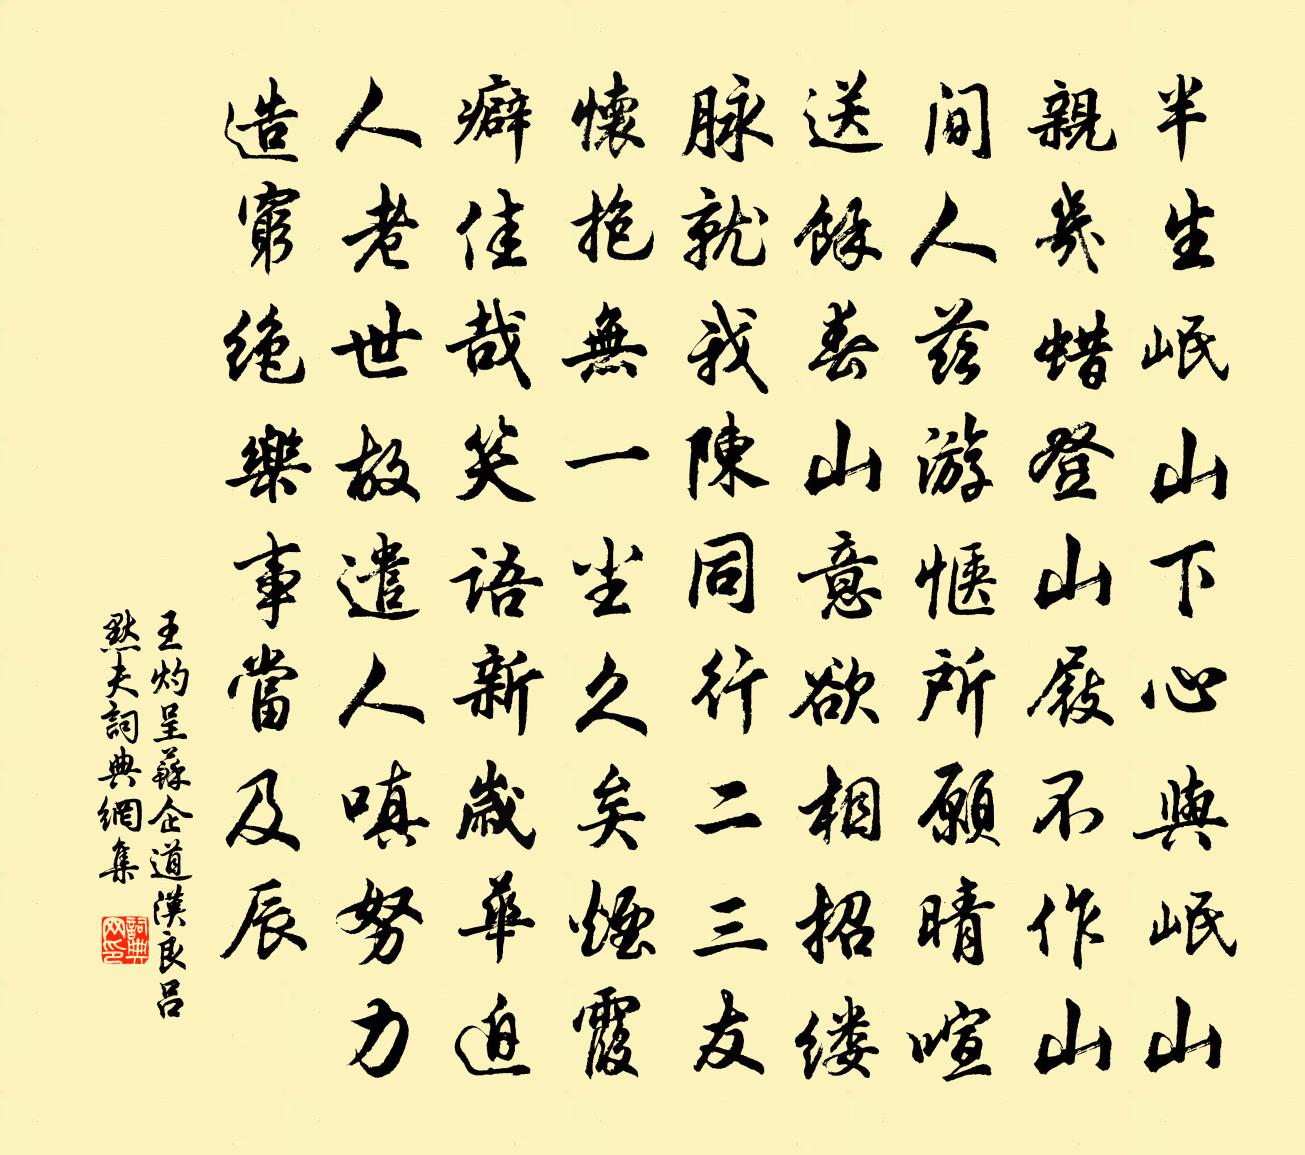 半生岷山下心與岷山
親幾蜡登山屐不作山
間人茲游愜所願晴喧
送餘春山意欲相招缕
脉就我陳同行二三友
懷抱無一尘久矣煙霞
癖佳哉笑語新歲華迫
人老世故遣人嗔努力
造窮絶樂事當及辰
王灼呈蘇企道漢良呂
默夫詞典網集
詞典网印